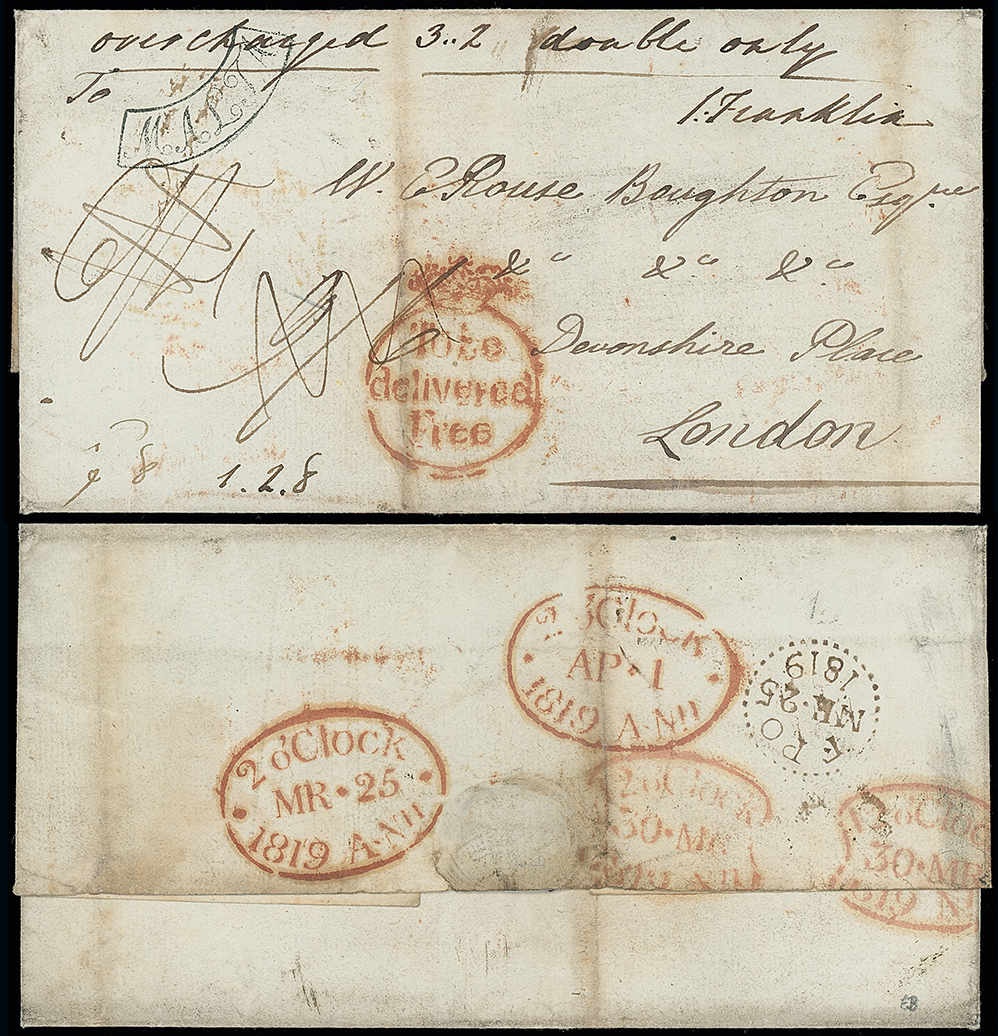 overcharged 3..2 double only
To
MALTA
J. Franklin
W. E. Rouse Boughton Esqre
&c &c &c
Devonshire Place
London
To be
delivered
Free
8 1.2.8
3 o'Clock
AP·1
1819 A.Nn
F P O
MR·25
1819
2 o'Clock
MR·25
1819 A.Nn
2 o'Clock
30·MR
1819 Nn
o'Cloc
30·MR
1819 N
EB